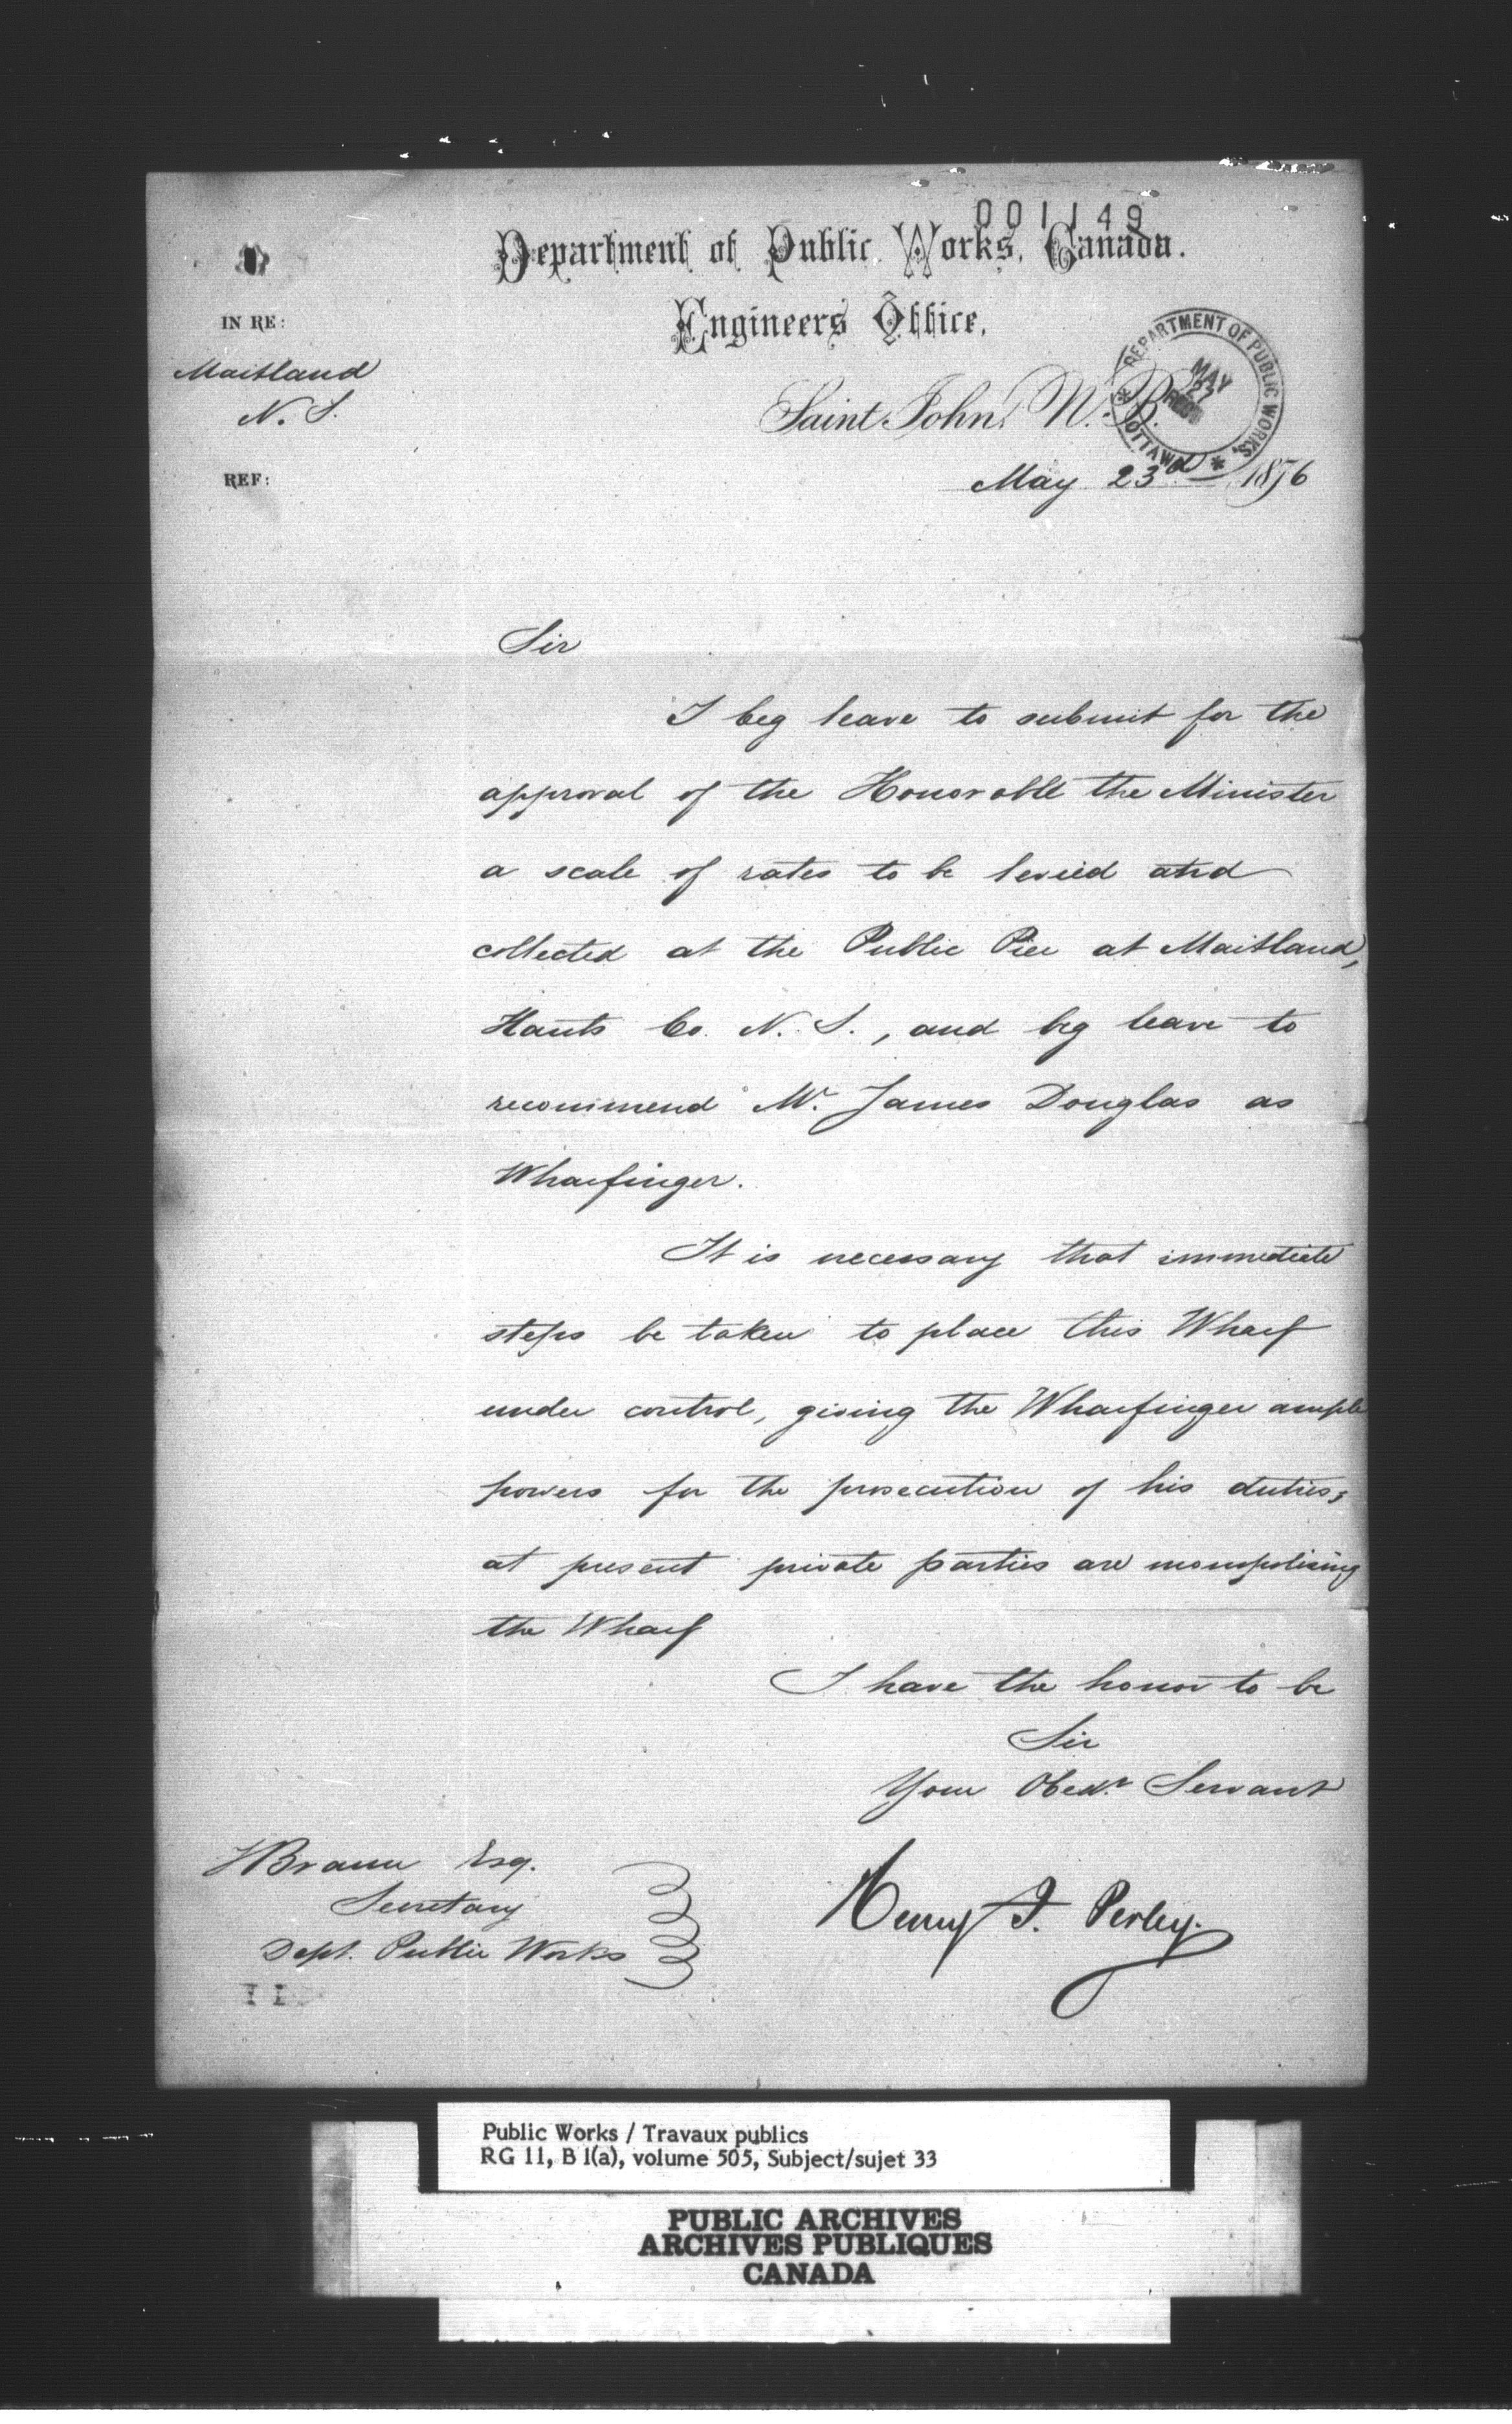 001149
Department of Public Works, Canada.
Engineers Office,
IN RE:
Maitland
N. S.
REF:
DEPARTMENT OF PUBLIC WORKS,
MAY
27
OTTAWA
Saint John, N. B.
May 23d 1876
Sir
I beg leave to submit for the
approval of the Honorable the Minister
a scale of rates to be levied and
collected at the Public Pier at Maitland,
Hants Co. N. S., and beg leave to
recommend Mr. James Douglas as
Wharfinger.
It is necessary that immediate
steps be taken to place this Wharf
under control, giving the Wharfinger ample
powers for the prosecution of his duties;
at present private parties are monopolizing
the Wharf
I have the honor to be
Sir
Your Obedt. Servant
Henry F. Perley.
F Braun Esq.
Secretary
Dept. Public Works
Public Works / Travaux publics
RG 11, B 1(a), volume 505, Subject/sujet 33
PUBLIC ARCHIVES
ARCHIVES PUBLIQUES
CANADA